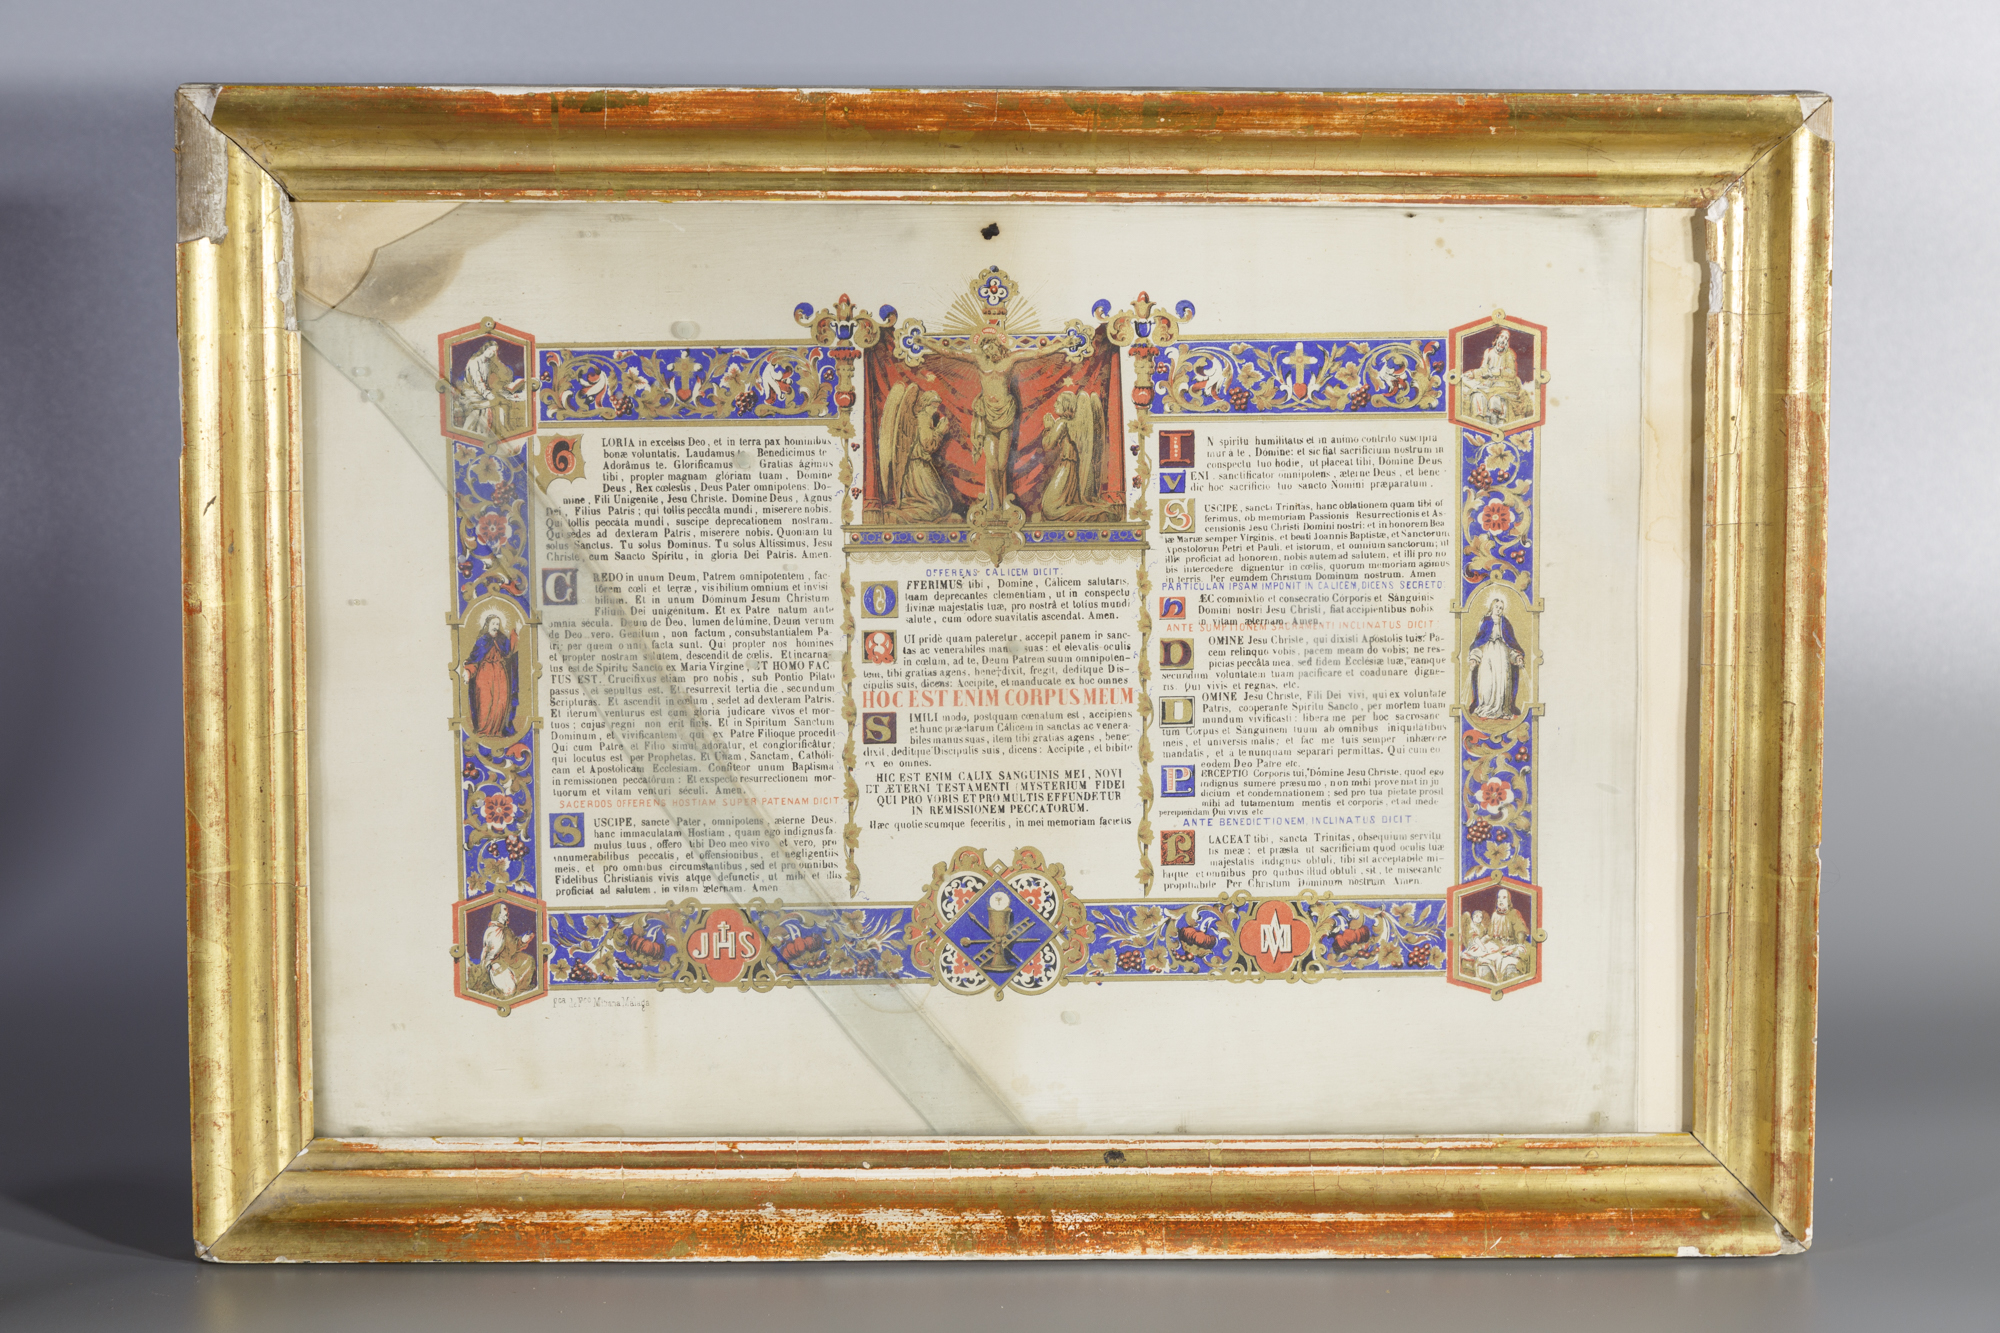 GLORIA in excelsis Deo, et in terra pax hominibus
bonæ voluntatis. Laudamus te Benedicimus te
Adorâmus te. Glorificamus Gratias ágimus
tibi, propter magnam glóriam tuam, Domine
Deus, Rex cœlestis, Deus Pater omnipotens. Do-
mine, Fili Unigenite, Jesu Christe. Domine Deus, Agnus
Dei, Filius Patris; qui tollis peccâta mundi, miserere nobis.
Qui tollis peccâta mundi, suscipe deprecationem nostram.
Qui sedes ad dexteram Patris, miserere nobis. Quoniam tu
solus Sanctus. Tu solus Dominus. Tu solus Altissimus, Jesu
Christe, cum Sancto Spiritu, in gloria Dei Patris. Amen.
CREDO in unum Deum, Patrem omnipotentem, fac-
tórem cœli et terræ, visibilium omnium et invisi
bilium. Et in unum Dominum Jesum Christum
Filium Dei unigenitum. Et ex Patre natum ante
omnia sécula. Deum de Deo, lumen de lúmine, Deum verum
de Deo vero. Genitum, non factum, consubstantialem Pa-
tri; per quem omnia facta sunt. Qui propter nos homines
et propter nostram salutem, descendit de cœlis. Et incarna-
tus est de Spiritu Sancto ex Maria Virgine, ET HOMO FAC
TUS EST. Crucifixus etiam pro nobis, sub Pontio Pilato
passus, et sepultus est. Et resurrexit tertia die, secundum
Scripturas. Et ascendit in cœlum, sedet ad dexteram Patris.
Et iterum venturus est cum gloria judicare vivos et mor-
tuos; cujus regni non erit finis. Et in Spiritum Sanctum
Dominum, et vivificantem, qui ex Patre Filioque procedit
Qui cum Patre et Filio simul adoratur, et conglorificâtur;
qui locutus est per Prophetas. Et Unam, Sanctam, Catholi-
cam et Apostolicam Ecclesiam. Confiteor unum Baptisma
in remissionen peccatórum: Et expecto resurrectionem mor-
tuorum et vitam venturi séculi. Amen.
SACERDOS OFFERENS HOSTIAM SUPER PATENAM DICIT
SUSCIPE, sancte Pater, omnipotens, æterne Deus,
hanc immaculatam Hostiam, quam ego indignus fa-
mulus tuus, offero tibi Deo meo vivo et vero, pro
innumerabilibus peccatis, et offensionibus, et negligentiis
meis, et pro omnibus circumstantibus, sed et pro omnibus
Fidelibus Christianis vivis atque defunctis, ut mihi et illis
proficiat ad salutem, in vitam æternam. Amen
OFFERENS CALICEM DICIT:
OFFERIMUS tibi, Domine, Cálicem salutaris,
tuam deprecantes clementiam, ut in conspectu
divinæ majestatis tuæ, pro nostrâ et totius mundi
salute, cum odore suavitatis ascendat. Amen.
QUI pridè quam pateretur, accepit panem in sanc-
tas ac venerabiles manus suas: et elevatis oculis
in cœlum, ad te, Deum Patrem suum omnipoten-
tem, tibi gratias agens, benedixit, fregit, deditque Dis-
cipulis suis, dicens: Accipite, et manducate ex hoc omnes
HOC EST ENIM CORPUS MEUM
SIMILI modo, postquam cœnatum est, accipiens
et hunc præclarum Cálicem in sanctas ac venera-
biles manus suas, item tibi gratias agens, bene-
dixit, deditque Discipulis suis, dicens: Accipite, et bibite
ex eo omnes.
HIC EST ENIM CALIX SANGUINIS MEI, NOVI
ET ÆTERNI TESTAMENTI (MYSTERIUM FIDEI
QUI PRO VOBIS ET PRO MULTIS EFFUNDETUR
IN REMISSIONEM PECCATORUM.
Hæc quotiescumque feceritis, in mei memoriam facietis
IN spiritu humilitatis et in animo contrito suscipia
mur a te, Domine: et sic fiat sacrificium nostrum in
conspectu tuo hodie, ut placeat tibi, Dómine Deus
VENI, sanctificator omnipotens, æterne Deus, et bene-
dic hoc sacrificio tuo sancto Nomini præparatum.
SUSCIPE, sancta Trinitas, hanc oblationem quam tibi of
ferimus, ob memoriam Passionis Resurrectionis et As-
censionis Jesu Christi Domini nostri: et in honorem Bea
tæ Mariæ semper Virginis, et beati Joannis Baptistæ, et Sanctorum
Apostolorum Petri et Pauli, et istorum, et omnium sanctorum; ut
illis proficiat ad honorem, nobis autem ad salutem, et illi pro no
bis intercedere dignentur in cœlis, quorum memoriam agimus
in terris. Per eumdem Christum Dominum nostrum. Amen
PARTICULAN IPSAM IMPONIT IN CALICEM, DICENS SECRETO:
HÆC commixtio et consecratio Corporis et Sánguinis
Domini nostri Jesu Christi, fiat accipientibus nobis
in vitam æternam. Amen.
ANTE SUMPTIONEM SACRAMENTI INCLINATUS DICIT:
DOMINE Jesu Christe, qui dixisti Apostolis tuis: Pa-
cem relinquo vobis, pacem meam do vobis; ne res-
picias peccâta mea, sed fidem Ecclesiæ tuæ, eamque
secundum voluntatem tuam pacificare et coadunare digne-
ris. Qui vivis et regnas, etc.
DOMINE Jesu Christe, Fili Dei vivi, qui ex voluntate
Patris, cooperante Spiritu Sancto, per mortem tuam
mundum vivificasti: libera me per hoc sacrosanc-
tum Corpus et Sanguinem tuum ab omnibus iniquitatibus
meis, et universis malis; et fac me tuis semper inhærere
mandatis, et a te nunquam separari permittas. Qui cum eo
eodem Deo Patre etc.
PERCEPTIO Corporis tui, Dómine Jesu Christe, quod ego
indignus sumere præsumo, non mihi proveniat in ju
dicium et condemnationem; sed pro tua pietate prosit
mihi ad tutamentum mentis et corporis, et ad mede
percipiendam Qui vivis etc
ANTE BENEDICTIONEM, INCLINATUS DICIT
PLACEAT tibi, sancta Trinitas, obsequium servitu
tis meæ; et præsta ut sacrificium quod oculis tuæ
majestatis indignus obtuli, tibi sit acceptabile mi-
hique et omnibus pro quibus illud obtuli, sit, te miserante
propitiabile Per Christum Dominum nostrum Amen.
JHS
Mitjana Málaga